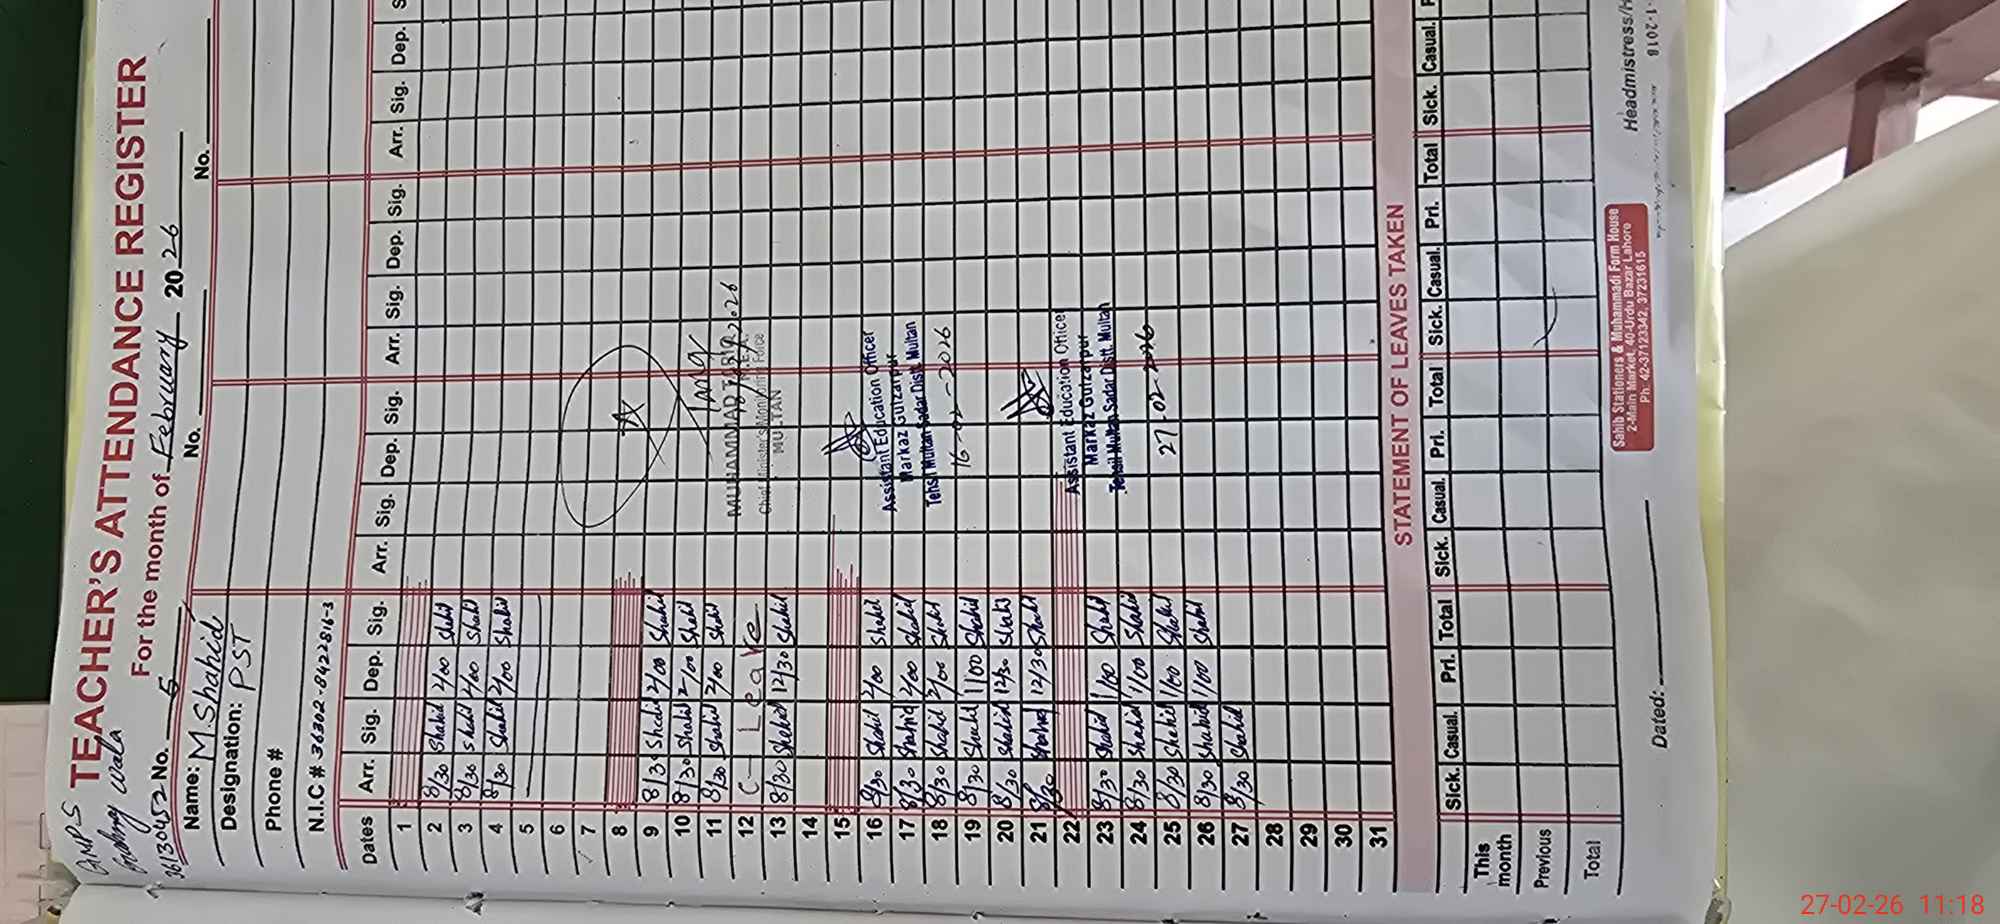 GMPS
wala
36130452 No. 5
TEACHER'S ATTENDANCE REGISTER
For the month of February 2026
Name: M.Shahid
No.
No.
Designation: PST
Phone #
N.I.C # 36302-8422816-3
Dates Arr. Sig. Dep. Sig. Arr. Sig. Dep. Sig. Arr. Sig. Dep. Sig. Arr. Sig. Dep. S
1
2 8/30 Shahid 2/00 Shahid
3 8/30 Shahid 2/00 Shahid
4 8/30 Shahid 2/00 Shahid
5
6
7
8
9 8/30 Shahid 2/00 Shahid
10 8/30 Shahid 2/00 Shahid
11 8/30 Shahid 2/00 Shahid
12 C - Leave
13 8/30 Shahid 12/30 Shahid
14
15
16 8/30 Shahid 2/00 Shahid
17 8/30 Shahid 2/00 Shahid
18 8/30 Shahid 2/00 Shahid
19 8/30 Shahid 1/00 Shahid
20 8/30 Shahid 12/30 Shahid
21 8/30 Shahid 12/30 Shahid
22
23 8/30 Shahid 1/00 Shahid
24 8/30 Shahid 1/00 Shahid
25 8/30 Shahid 1/00 Shahid
26 8/30 Shahid 1/00 Shahid
27 8/30 Shahid
28
29
30
31
MUHAMMAD TARIQ
Chief Minister's Monitoring Force
MULTAN
Assistant Education Officer
Markaz Gulzarpur
Tehsil Multan Sadar Distt. Multan
16-02-2026
Assistant Education Officer
Markaz Gulzarpur
Tehsil Multan Sadar Distt. Multan
27-02-2026
STATEMENT OF LEAVES TAKEN
Sick. Casual. Pri. Total Sick. Casual. Pri. Total Sick. Casual. Pri. Total Sick. Casual. P
This month
Previous
Total
Sahib Stationers & Muhammadi Form House
2-Main Market, 40-Urdu Bazar Lahore
Ph: 42-37123342, 37231615
Dated:
Headmistress/H
27-02-26 11:18